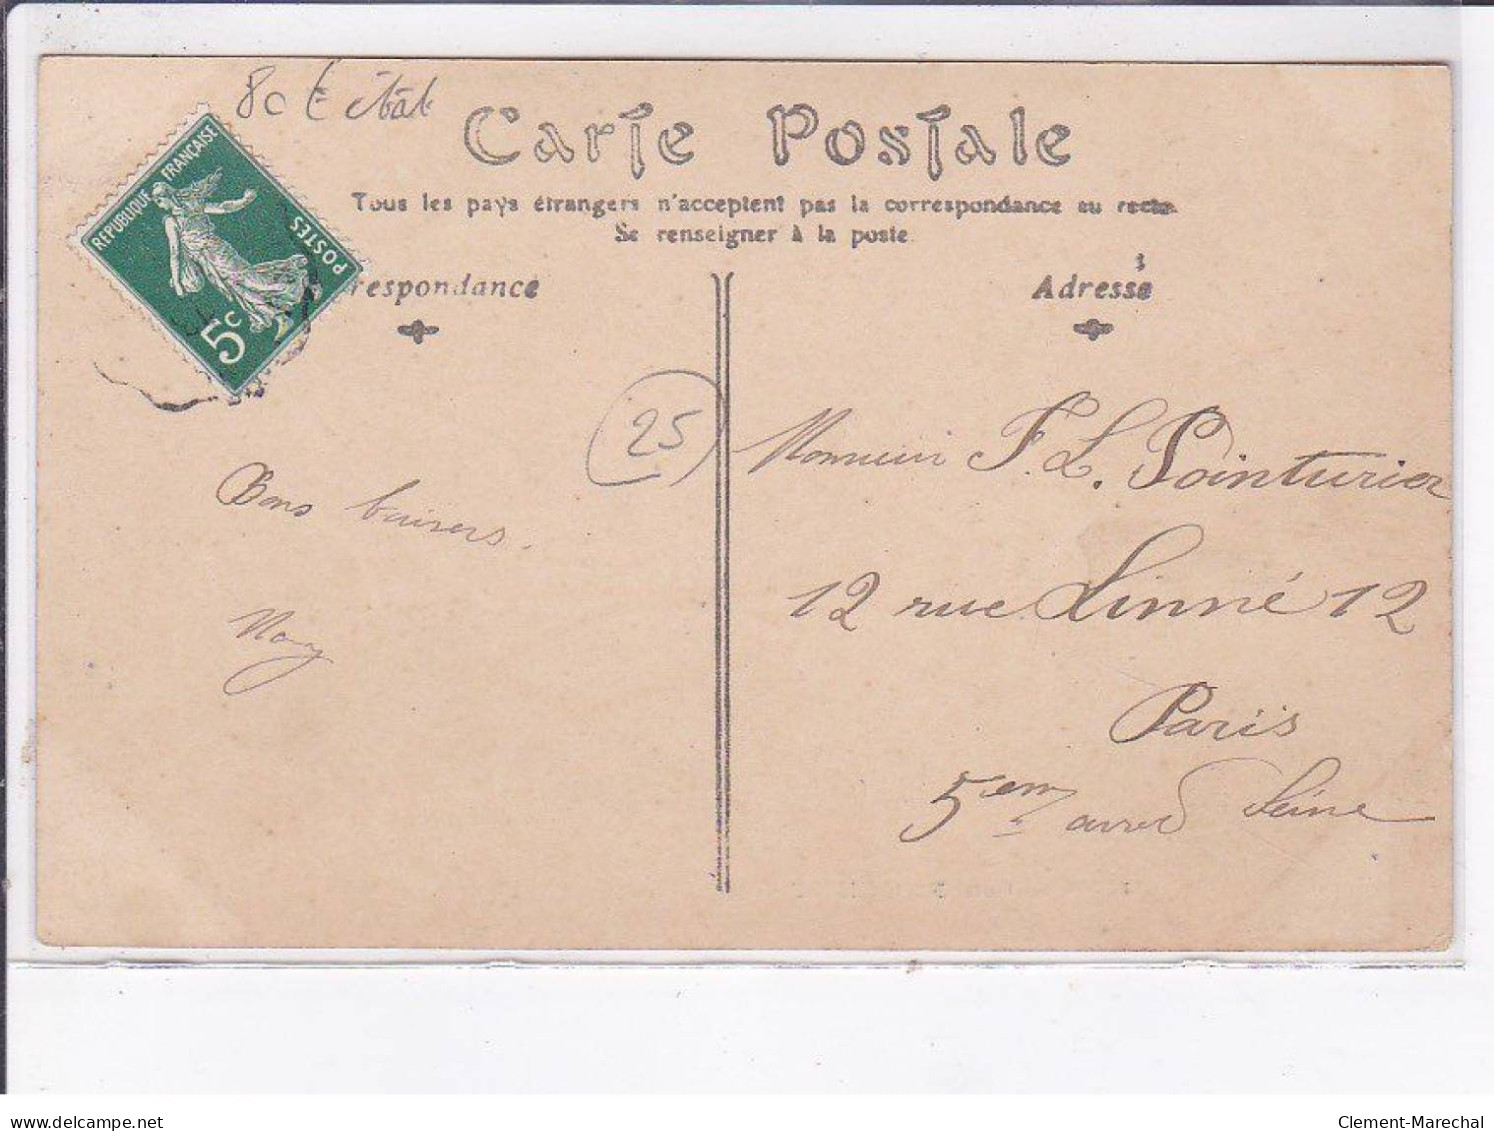 80 € état
Carte Postale
RÉPUBLIQUE FRANÇAISE
POSTES
5c
Tous les pays étrangers n'acceptent pas la correspondance au recto.
Se renseigner à la poste
respondance
Adresse
25
Monsieur F. L. Pointurier
Bons baisers.
12 rue Linné 12
Paris
5em arred Seine
delcampe.net
Clement-Marechal